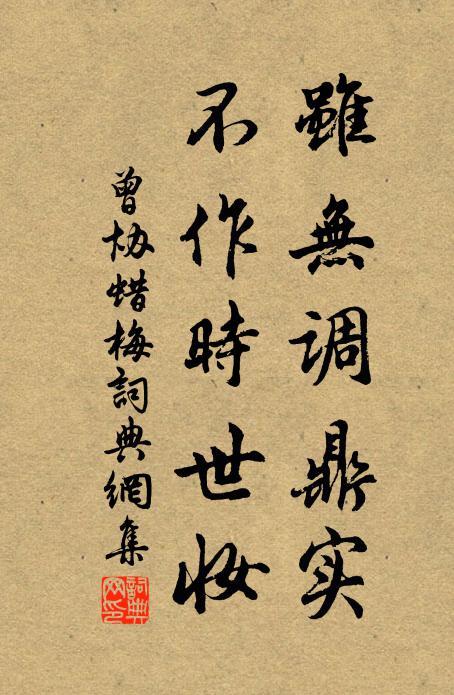 雖無调鼎实
不作時世妆
曾协蜡梅詞典網集
詞典网印